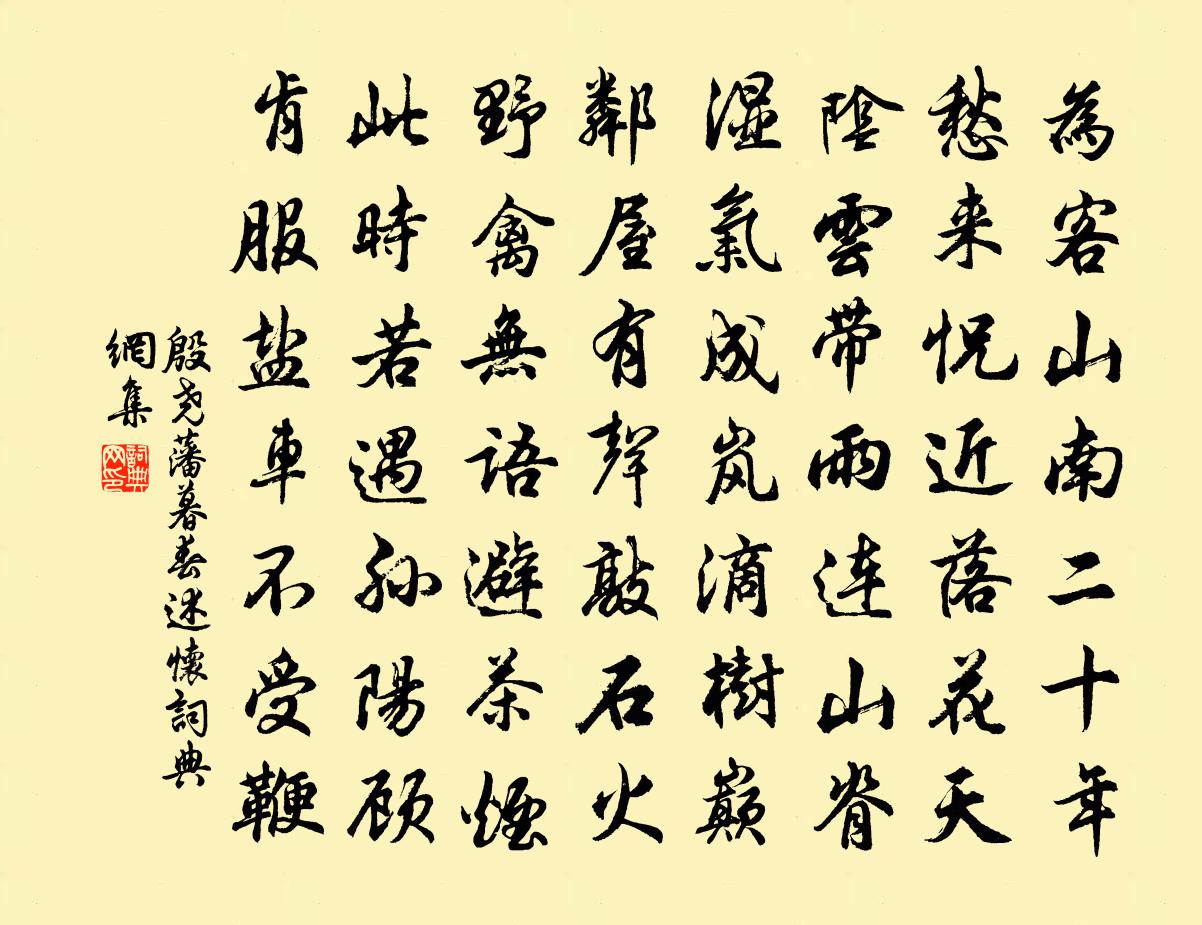 為客山南二十年
愁来怳近落花天
陰雲带雨連山脊
湿氣成岚滴樹巅
鄰屋有聲敲石火
野禽無語避茶煙
此時若遇孙陽顾
肯服盐車不受鞭
殷尧藩暮春述懷詞典
網集
詞典
网印